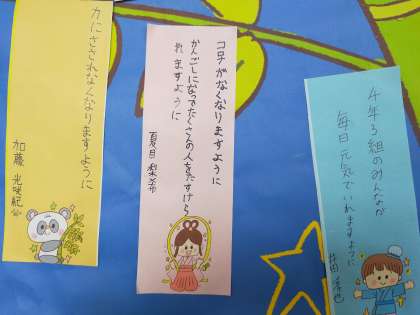 4年3組のみんなが
毎日元気でいれますように
コロナがなくなりますように
かんごしになってたくさんの人をたすけら
れますように
夏目 梨希
カにさされなくなりますように
加藤 光咲紀